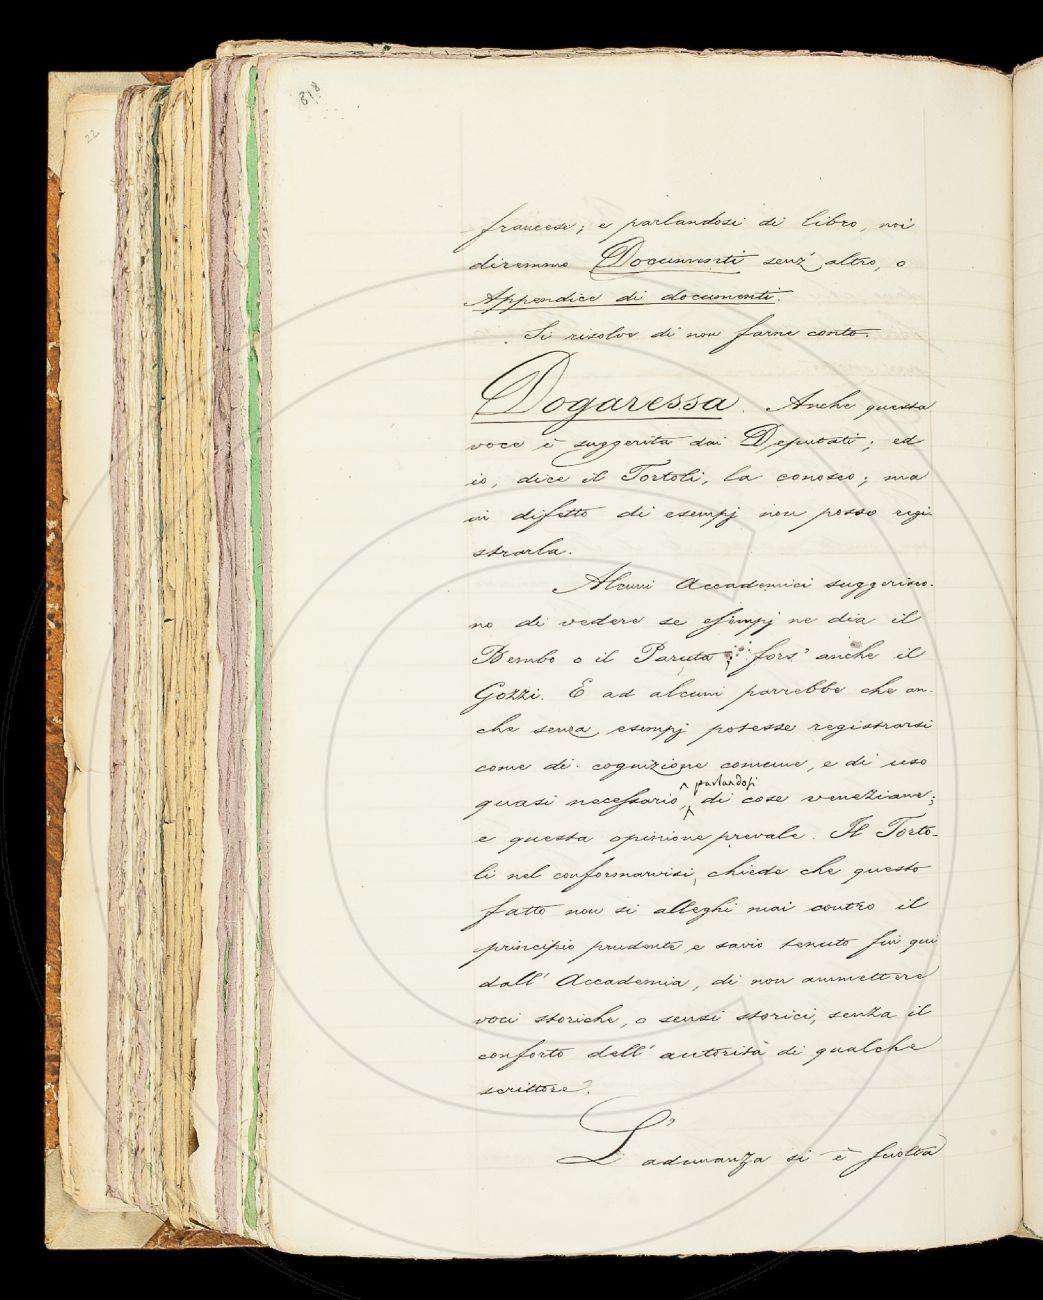 878
22
francese; e parlandosi di libro, noi
diremmo Documenti senz'altro, o
Appendice di documenti.
Si risolve di non farne conto.
Dogaressa. Anche questa
voce è suggerita dai Deputati; ed
io, dice il Tortoli, la conosco; ma
in difetto di esempj non posso regi-
strarla.
Alcuni Accademici suggerisco-
no di vedere se esempj ne dia il
Bembo o il Paruta; fors' anche il
Gozzi. E ad alcuni parrebbe che an-
che senza esempj potesse registrarsi
come di cognizione comune, e di uso
parlandosi
quasi necessario, di cose veneziane;
e questa opinione prevale. Il Torto-
li nel conformarvisi, chiede che questo
fatto non si alleghi mai contro il
principio prudente e savio tenuto fin qui
dall' Accademia, di non ammettere
voci storiche, o sensi storici, senza il
conforto dell' autorità di qualche
scrittore.
L' adunanza si è sciolta